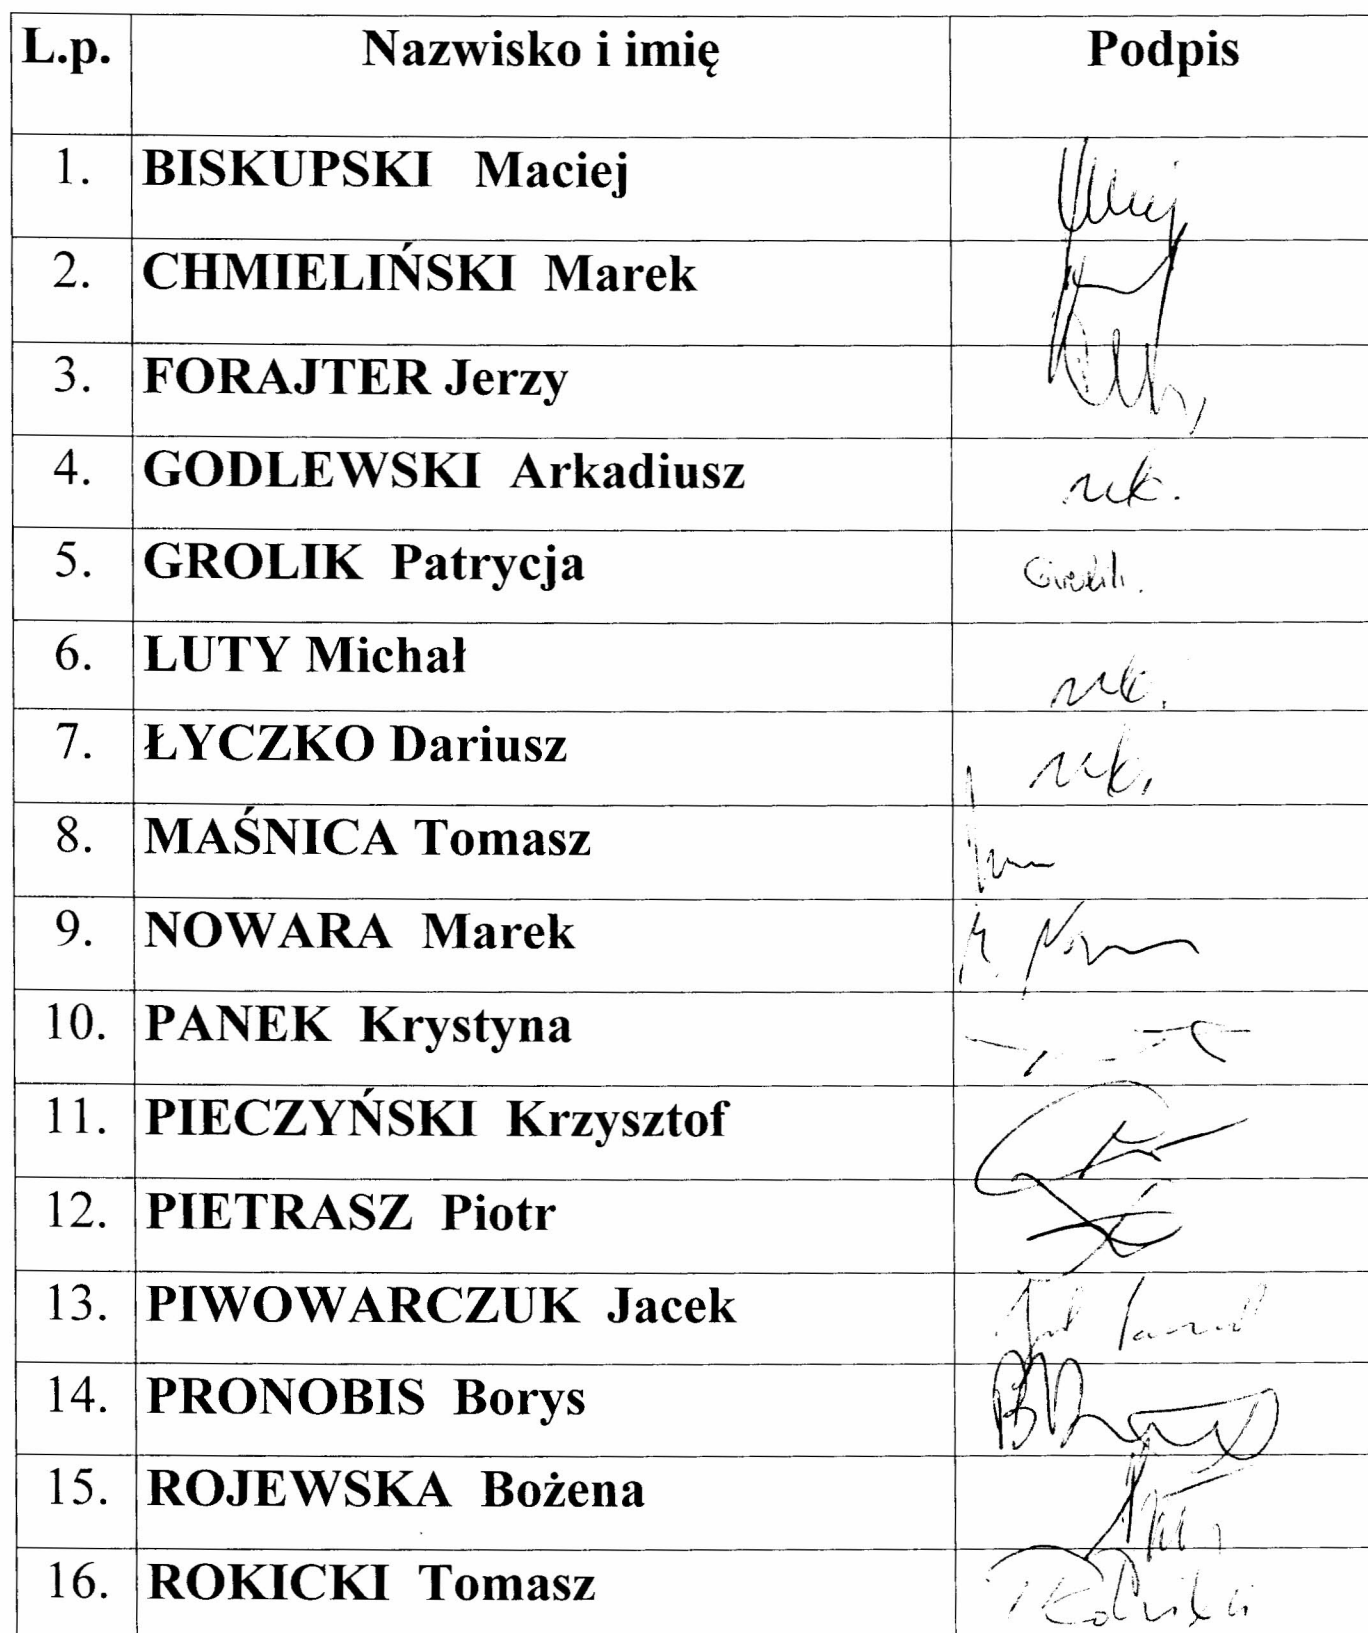 L.p. Nazwisko i imię Podpis
1. BISKUPSKI Maciej
2. CHMIELIŃSKI Marek
3. FORAJTER Jerzy
4. GODLEWSKI Arkadiusz
5. GROLIK Patrycja
6. LUTY Michał
7. ŁYCZKO Dariusz
8. MAŚNICA Tomasz
9. NOWARA Marek
10. PANEK Krystyna
11. PIECZYŃSKI Krzysztof
12. PIETRASZ Piotr
13. PIWOWARCZUK Jacek
14. PRONOBIS Borys
15. ROJEWSKA Bożena
16. ROKICKI Tomasz